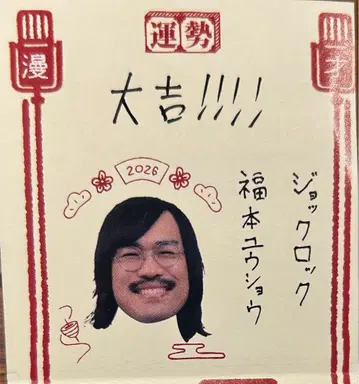 運勢
漫
才
大吉!!!!
2026
ジョックロック
福本ユウショウ